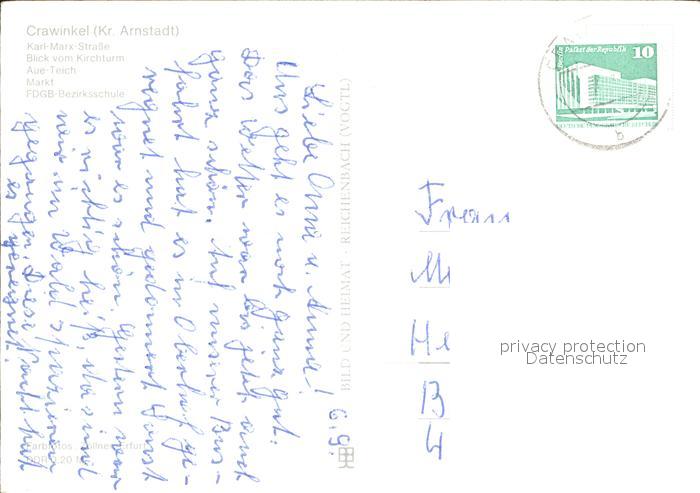 Crawinkel (Kr. Arnstadt)
Karl-Marx-Straße
Blick vom Kirchturm
Aue-Teich
Markt
FDGB-Bezirksschule
6. 9.
Liebe Oma u. Anna!
Uns geht es noch ganz gut.
Das Wetter war bis jetzt auch
ganz schön. Auf unserer Bus-
fahrt hat es in Oberhof ge-
regnet und gedonnert sonst
war es schön. Gestern war
es richtig heiß, da sind
wir im Wald spazieren
gegangen. Diese Nacht hat
es geregnet.
BILD UND HEIMAT · REICHENBACH (VOGTL)
Berlin Palast der Republik 10
Frau
M
He
B
4
privacy protection
Datenschutz